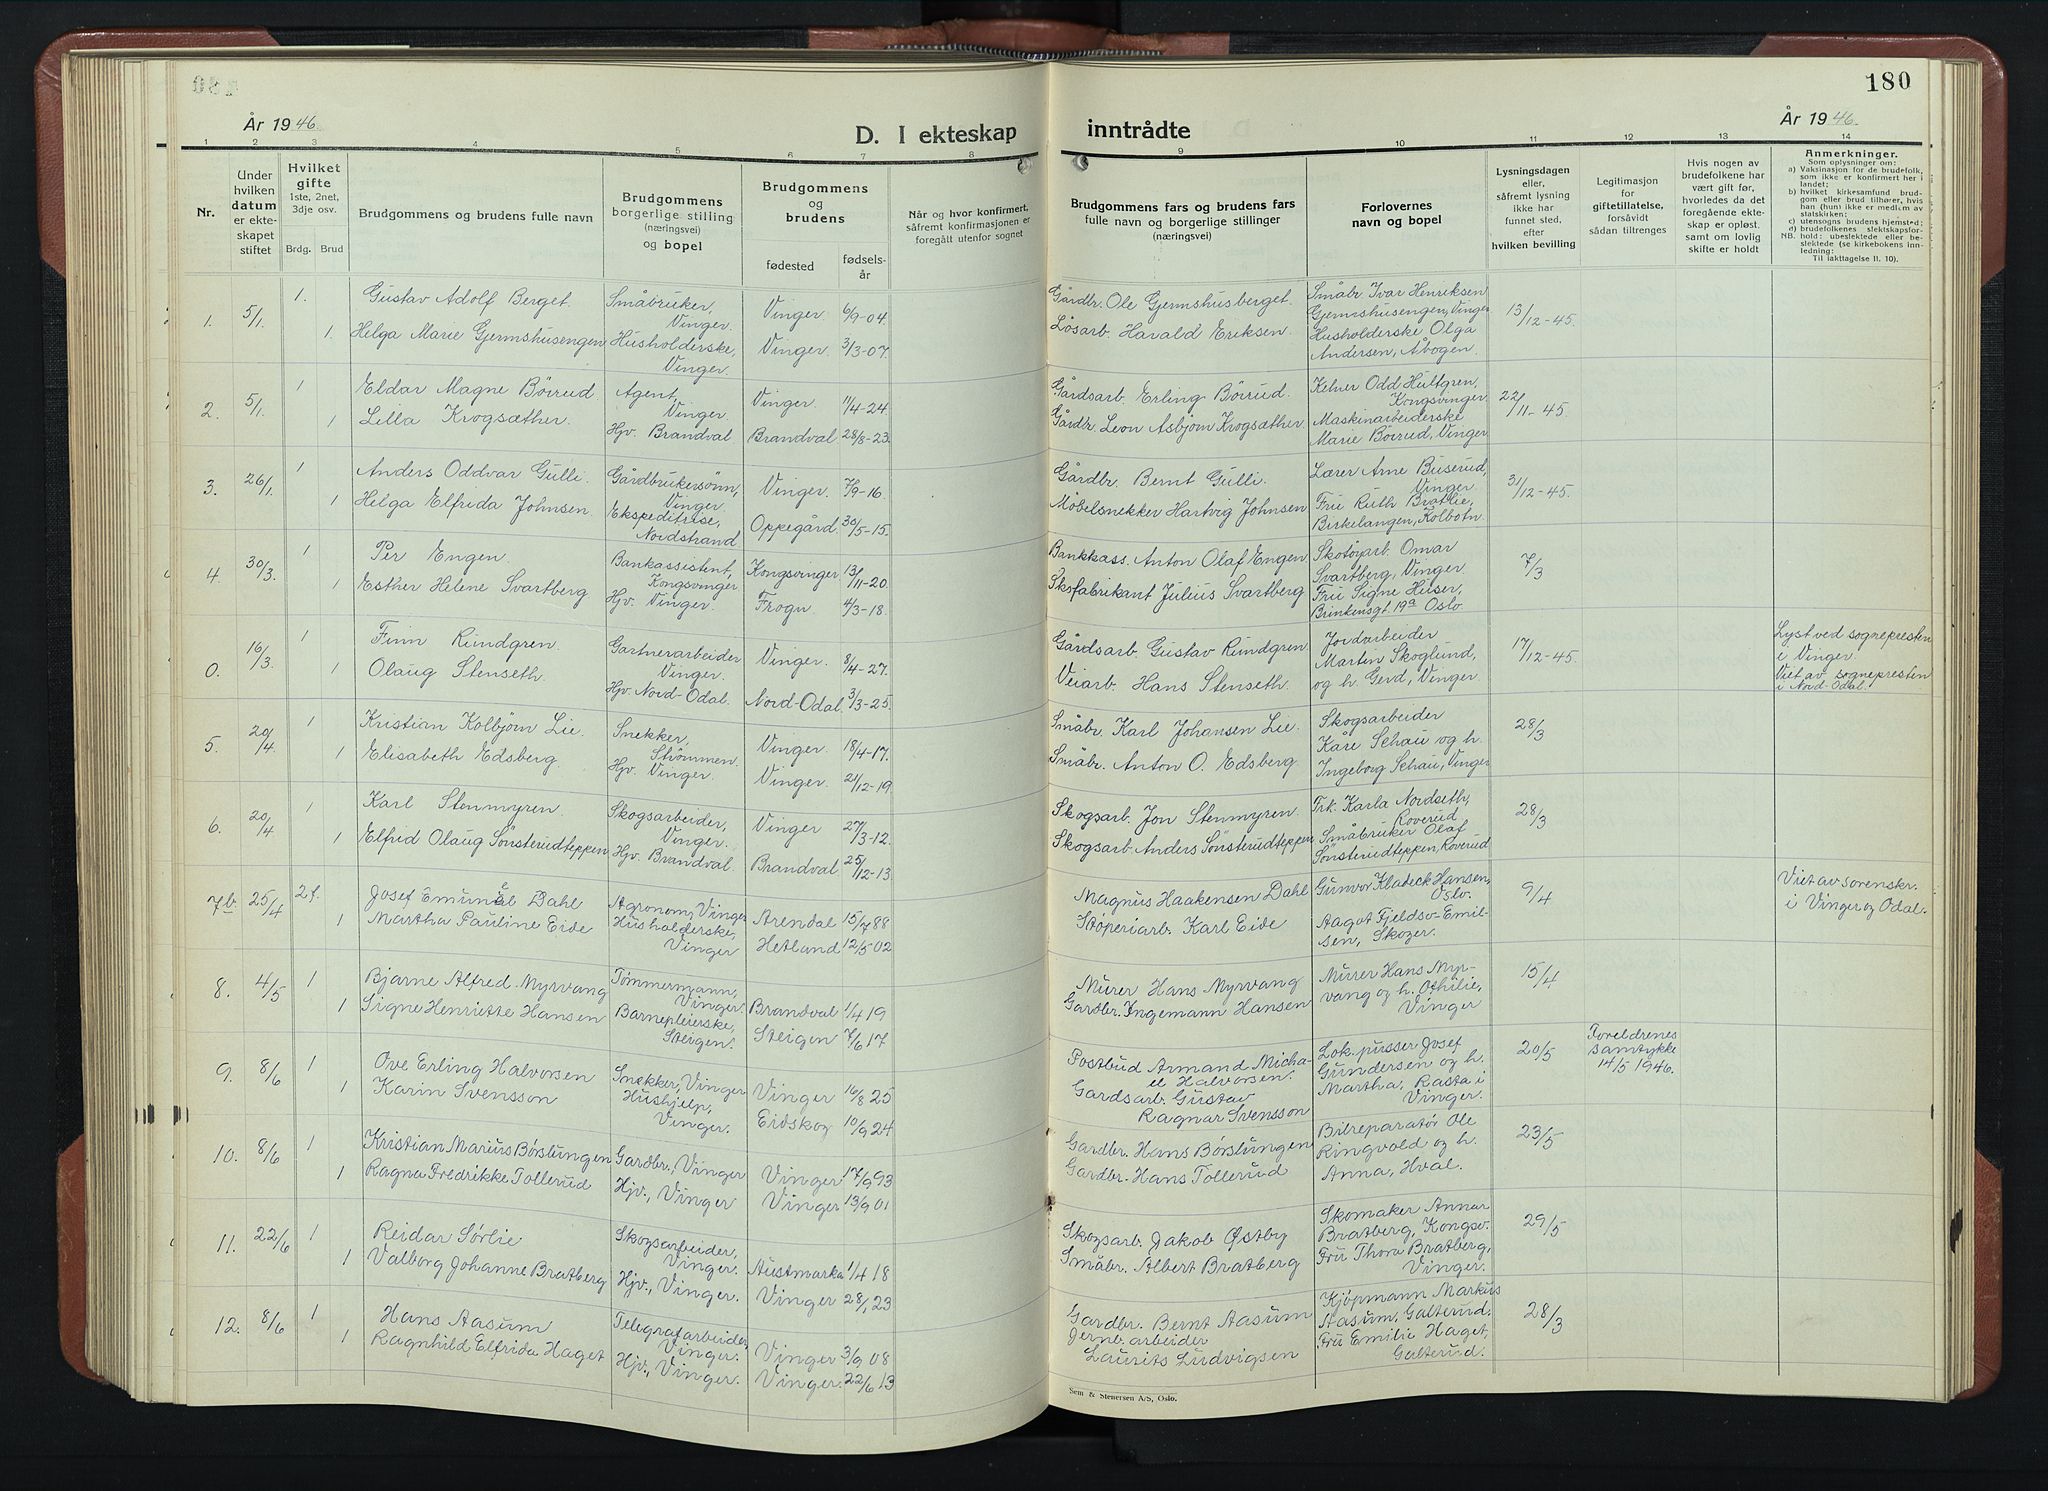 180
År 1946.
D. I ekteskap inntrådte
År 1946.
1 2 3 4 5 6 7 8 9 10 11 12 13 14
Nr.
Under hvilken datum er ekteskapet stiftet
Hvilket gifte 1ste, 2net, 3dje osv.
Brdg. Brud
Brudgommens og brudens fulle navn
Brudgommens borgerlige stilling (næringsvei) og bopel
Brudgommens og brudens
fødested
fødselsår
Når og hvor konfirmert, såfremt konfirmasjonen er foregått utenfor sognet
Brudgommens fars og brudens fars fulle navn og borgerlige stillinger (næringsvei)
Forlovernes navn og bopel
Lysningsdagen eller, såfremt lysning ikke har funnet sted, efter hvilken bevilling
Legitimasjon for giftetillatelse, forsåvidt sådan tiltrenges
Hvis nogen av brudefolkene har vært gift før, hvorledes da det foregående ekteskap er opløst, samt om lovlig skifte er holdt
Anmerkninger.
Som oplysninger om:
a) Vaksinasjon for de brudefolk, som ikke er konfirmert her i landet;
b) hvilket kirkesamfund brudgom eller brud tilhører, hvis han (hun) ikke er medlem av statskirken;
c) utensogns brudens hjemsted;
d) brudefolkenes slektskapsforhold: ubeslektede eller beslektede (se kirkebokens innledning:
NB.
Til iakttagelse II. 10).
1. 5/1. 1. Gustav Adolf Berget. Småbruker, Vinger. Vinger. 6/9-04. Gårdbr. Ole Gjermshusberget. Småbr. Ivar Henriksen Gjermshusengen, Vinger 13/12-45.
1. Helga Marie Gjermshusengen Husholderske, Vinger. Vinger. 3/3-07. Løsarb. Harald Eriksen. Husholderske Olga Andersen, Åbogen.
2. 5/1. 1 Eldar Magne Böirud Agent, Vinger Vinger. 11/4-24. Gårdsarb. Erling Böirud. Kelner Odd Hultgren, Kongsvinger 22/11-45.
1 Lilla Krogsæther. Hjv. Brandval Brandval 28/8-23. Gårdbr. Leon Asbjørn Krogsæther Maskinarbeiderske Marie Böirud, Vinger
3. 26/1. 1 Anders Oddvar Gulli. Gårdbrukersönn, Vinger Vinger. 7/9-16. Gårdbr. Bernt Gulli. Lærer Arne Buserud, Vinger 31/12-45.
1 Helga Elfrida Johnsen. Ekspeditrise, Nordstrand Oppegård 30/5-15. Möbelsnekker Hartvig Johnsen Fru Ruth Bratlie, Birkelangen, Kolbotn.
4. 30/3. 1 Per Engen. Bankassistent, Kongsvinger Kongsvinger 13/11-20. Bankkass. Anton Olaf Engen Skotøyarb. Omar Svartberg, Vinger 7/3
1 Esther Helene Svartberg Hjv. Vinger. Frogn 4/3-18. Skofabrikant Julius Svartberg Fru Signe Huser, Brinkensgt. 19a Oslo.
0. 16/3. 1 Finn Rundgren. Gartnerarbeider Vinger. Vinger. 8/4-27. Gårdsarb. Gustav Rundgren Jordarbeider Martin Skoglund, 17/12-45. Lyst ved sognepresten i Vinger.
1 Olaug Stenseth. Hjv. Nord-Odal. Nord-Odal. 3/3-25. Veiarb. Hans Stenseth. og h. Gerd, Vinger Viet av sognepresten i Nord-Odal.
5. 20/4. 1 Kristian Kolbjörn Lie. Snekker, Strömmen. Vinger. 18/4-17. Småbr. Karl Johansen Lie Skogsarbeider Kåre Schau og h. 28/3
1 Elisabeth Edsberg. Hjv. Vinger. Vinger. 21/12-19 Småbr. Anton O. Edsberg Ingeborg Schau, Vinger
6. 20/4. 1 Karl Stenmyren. Skogsarbeider, Vinger. Vinger 27/3-12. Skogsarb. Jon Stenmyren. Frk. Karla Nordseth, Roverud 28/3
1 Elfrid Olaug Sönsterudteppen Hjv. Brandval. Brandval 25/12-13. Skogsarb. Anders Sönsterudteppen Småbruker Olaf Sönsterudteppen, Roverud
7b. 25/4 2f. Josef Emanuel Dahl Agronom, Vinger Arendal 15/7 88 Magnus Haakensen Dahl Gunvor Kladeck Hansen, Oslo. 9/4 Viet av sorenskr. i Vinger og Odal.
1 Martha Pauline Eide Husholderske, Vinger Hetland 12/5 02 Støperiarb. Karl Eide Aagot Fjeldso-Emilsen, Skozer.
8. 4/5 1 Bjarne Alfred Myrvang Tømmermann, Vinger. Brandval 1/4 19 Murer Hans Myrvang Murer Hans Myrvang og h. Othilie, Vinger 15/4
1 Signe Henriette Hansen Barnepleierske, Steigen. Steigen 7/6 17 Gardbr. Ingemann Hansen
9. 8/6 1 Ove Erling Halvorsen Snekker, Vinger Vinger 16/8 25 Postbud Armand Michael Halvorsen. Lok. pusser Josef Gundersen og h. Martha, Rasta i Vinger. 20/5 Foreldrenes samtykke 14/5 1946.
1 Karin Svensson Hushjelp, Vinger. Eidskog 10/9 24 Gardsarb. Gustav Ragnar Svensson
10. 8/6 1 Kristian Marius Børslungen Gardbr., Vinger Vinger 17/9 93 Gardbr. Hans Børslungen Bilreparatør Ole Ringvold og h. Anna, Hval. 23/5
1 Ragna Fredrikke Tollerud Hjv., Vinger Vinger 13/9 01 Gardbr. Hans Tollerud
11. 22/6 1 Reidar Sørlie Skogsarbeider, Vinger. Austmarka 1/4 18 Skogsarb. Jakob Østby Skomaker Annar Bratberg, Kongsv. 29/5
1 Valborg Johanne Bratberg Hjv., Vinger. Vinger 28/1 23 Småbr. Albert Bratberg Fru Thora Bratberg, Vinger.
12. 8/6 1 Hans Aasum Telegrafarbeider, Vinger. Vinger 3/9 08 Gardbr. Bernt Aasum Kjøpmann Markus Aasum, Galterud. 28/3
1 Ragnhild Elfrida Haget Hjv., Vinger. Vinger. 22/6 13 Jernb. arbeider Laurits Ludvigsen Fru Emilie Haget, Galterud.
Sem & Stenersen A/S, Oslo.